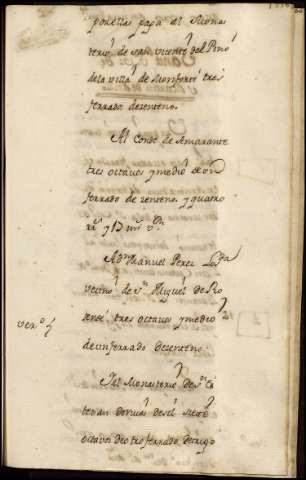 por ellas paga al Mona
terio de san Vicente del Pino
de la villa de Monforte tres
ferrado de zenteno.
Al Conde de Amarante
tres octavos y medio de un
ferrado de zenteno, y quatro
rs. y 17 ms. vn.
A Dn. Manuel Perez
vecino de Sn. Miguel de Ro
tres octavos y medio
de un ferrado de zenteno.
Y al Monasterio de Sn. Es
tevan de Rivas de Sil siete
octavos de otro ferrado de trigo